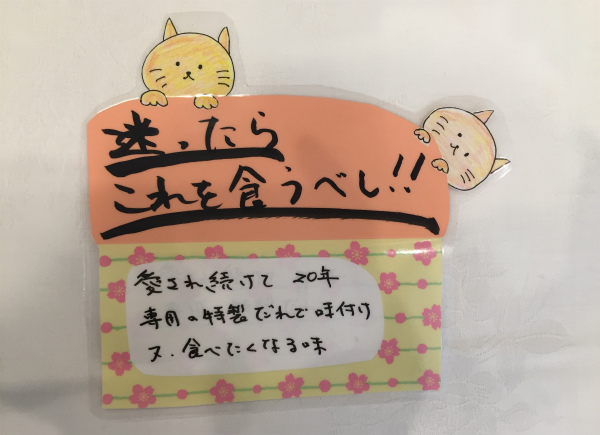 迷ったら
これを食うべし!!
愛され続けて 20年
専用の特製だれで味付け
又、食べたくなる味